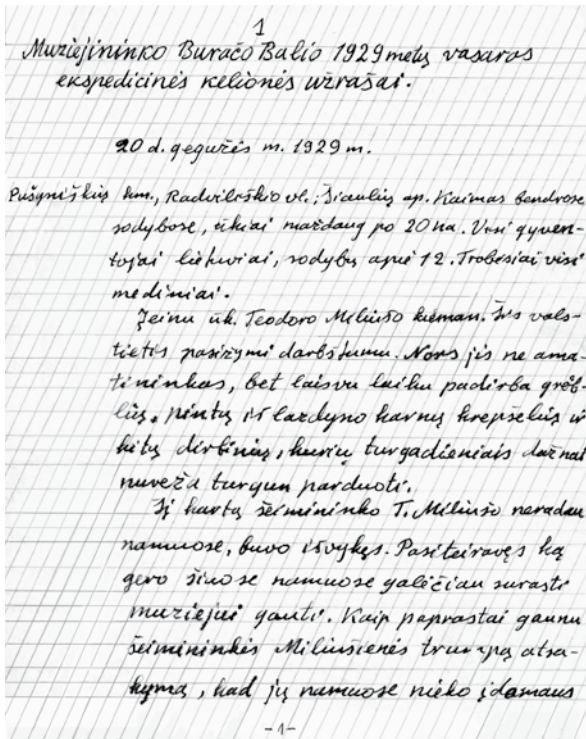 1
Muziejininko Buračo Balio 1929 metų vasaros
ekspedicinės kelionės užrašai.
20 d. gegužės m. 1929 m.
Pušyniškių km., Radviliškio vl., Šiaulių ap. Kaimas bendrose
sodybose, ūkiai maždaug po 20 ha. Visi gyven-
tojai lietuviai, sodybų apie 12. Trobesiai visi
mediniai.
Įeinu ūk. Teodoro Miliušo kieman. Šis vals-
tietis pasižymi darbštumu. Nors jis ne ama-
tininkas, bet laisvu laiku padirba grėb-
lių, pintų iš lazdyno karnų krepšelių ir
kitų dirbinių, kurių turgadieniais dažnai
nuveža turgun parduoti.
Šį kartą šeimininko T. Miliušo neradau
namuose, buvo išvykęs. Pasiteiravęs ką
gero šiuose namuose galėčiau surasti
muziejui gauti. Kaip paprastai gaunu
šeimininkės Miliušienės trumpą atsa-
kymą, kad jų namuose nieko įdomaus
-1-